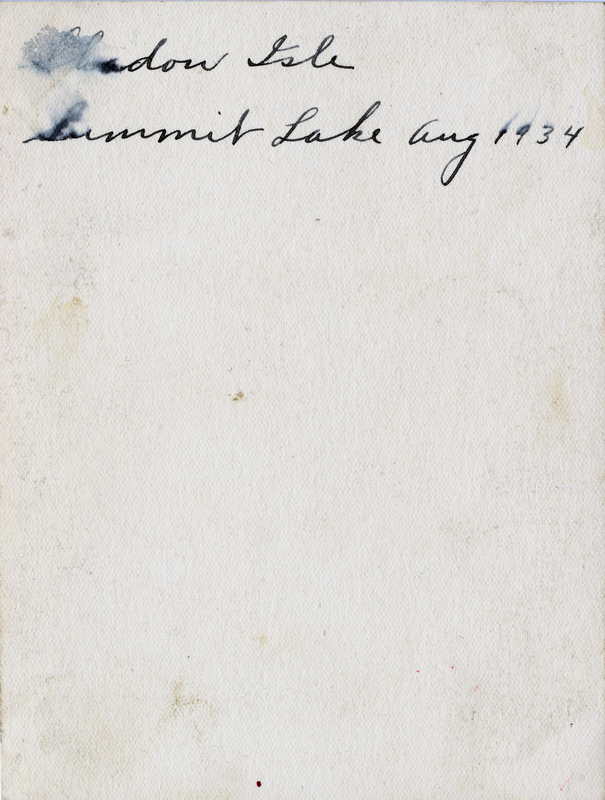 Shadow Isle
Summit Lake Aug 1934